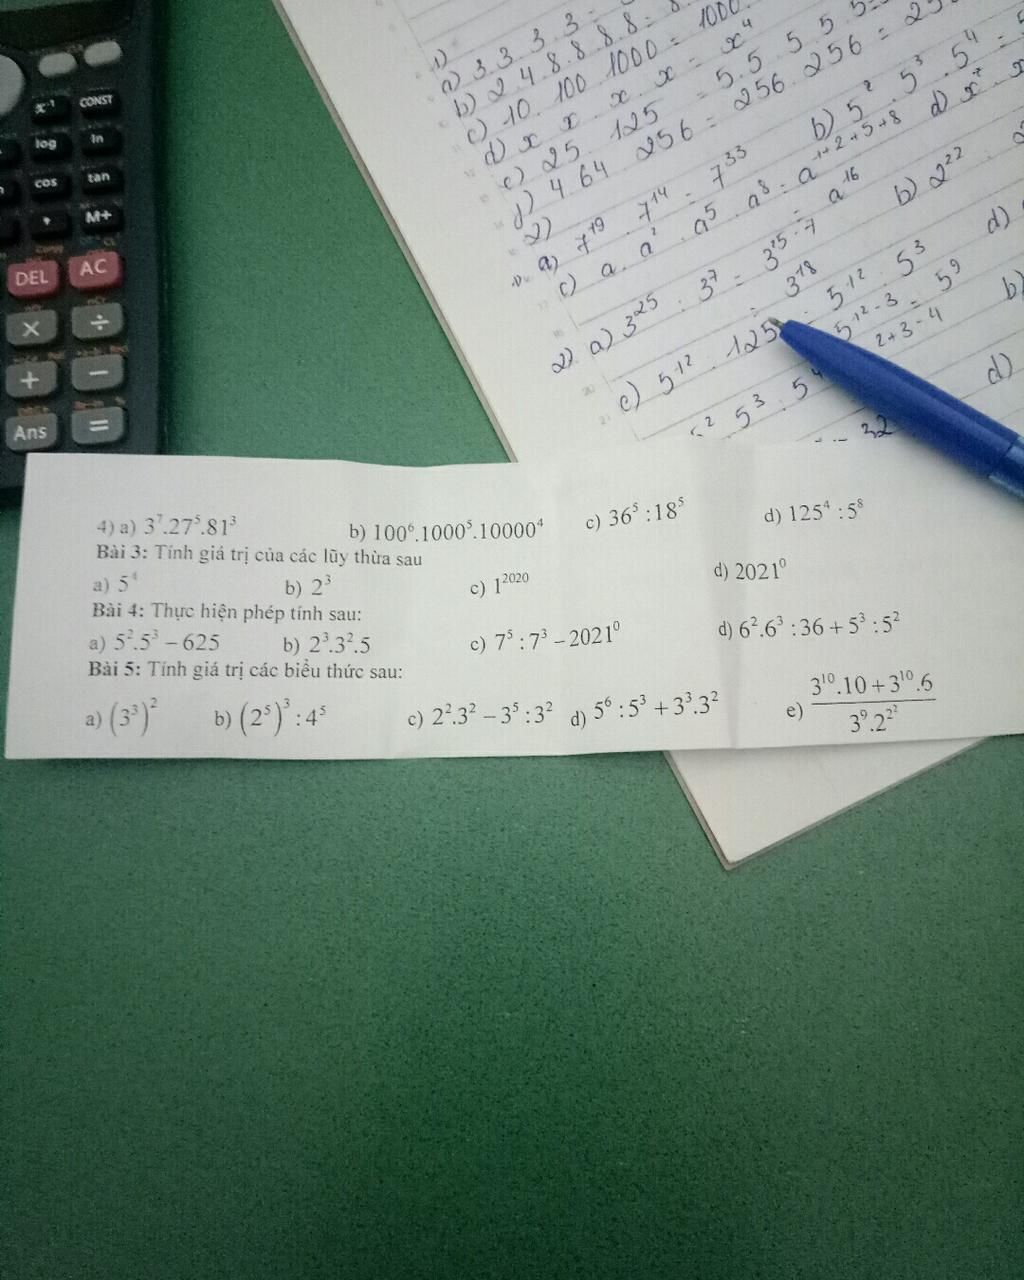 x⁻¹ CONST
log ln
cos tan
, M+
DEL AC
× ÷
+ −
Ans =
1)
a) 3. 3. 3. 3
b) 2. 4. 8. 8. 8. 8 =
c) 10. 100. 1000 = 1000
d) x. x. x. x = x⁴
e) 25. 125 = 5. 5. 5. 5. 5
f) 4. 64. 256 = 256. 256 =
2)
a) 7¹⁹. 7¹⁴ = 7³³ b) 5². 5³. 5⁴
c) a. a². a⁵. a⁸ = a¹⁺²⁺⁵⁺⁸ d)
= a¹⁶
2) a) 3²⁵ : 3⁷ = 3²⁵⁻⁷ b) 2²²
= 3¹⁸ d)
c) 5¹² : 125 = 5¹² : 5³
5¹²⁻³ = 5⁹ b)
5³. 5⁴ 2+3-4 d)
32
4) a) 3⁷.27⁵.81³ b) 100⁶.1000⁵.10000⁴ c) 36⁵ : 18⁵ d) 125⁴ : 5⁸
Bài 3: Tính giá trị của các lũy thừa sau
a) 5⁴ b) 2³ c) 1²⁰²⁰ d) 2021⁰
Bài 4: Thực hiện phép tính sau:
a) 5².5³ − 625 b) 2³.3².5 c) 7⁵ : 7³ − 2021⁰ d) 6².6³ : 36 + 5³ : 5²
Bài 5: Tính giá trị các biểu thức sau:
a) (3³)² b) (2⁵)³ : 4⁵ c) 2².3² − 3⁵ : 3² d) 5⁶ : 5³ + 3³.3² e) (3¹⁰.10 + 3¹⁰.6) / (3⁹.2^(2²))